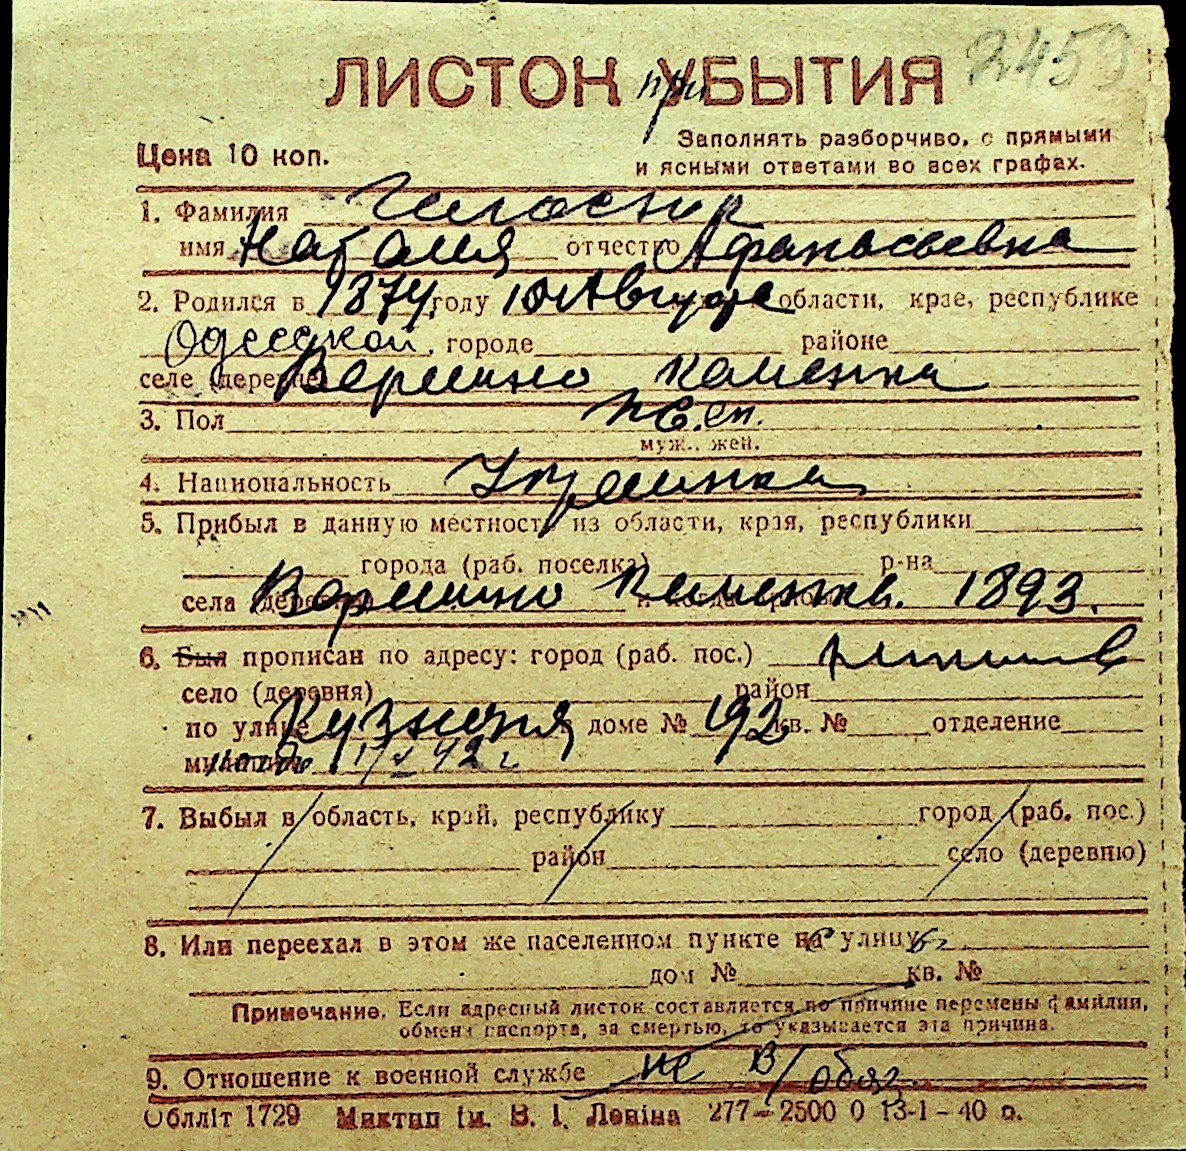 2459
ЛИСТОК при УБЫТИЯ
Цена 10 коп.
Заполнять разборчиво, с прямыми
и ясными ответами во всех графах.
1. Фамилия
имя Наталия отчество Афанасьевна
2. Родился в 1874 году 10 Августа области, крае, республике
Одесской. городе районе
селе (деревне) Вормино Каменка
3. Пол жен.
муж., жен.
4. Национальность Украинка
5. Прибыл в данную местность из области, края, республики
города (раб. поселка) р-на
села (деревни) Вормино Каменка. 1893.
6. Был прописан по адресу: город (раб. пос.)
село (деревня) район
по улице Кузнечная доме № 192 кв. № отделение
милиции 42 г.
7. Выбыл в область, край, республику город (раб. пос.)
район село (деревню)
8. Или переехал в этом же населенном пункте на улицу
дом № кв. №
Примечание. Если адресный листок составляется по причине перемены фамилии,
обмена паспорта, за смертью, то указывается эта причина.
9. Отношение к военной службе не в/обяз.
Облліт 1729 Миктип ім. В. І. Леніна 277—2500 0 13-1-40 р.